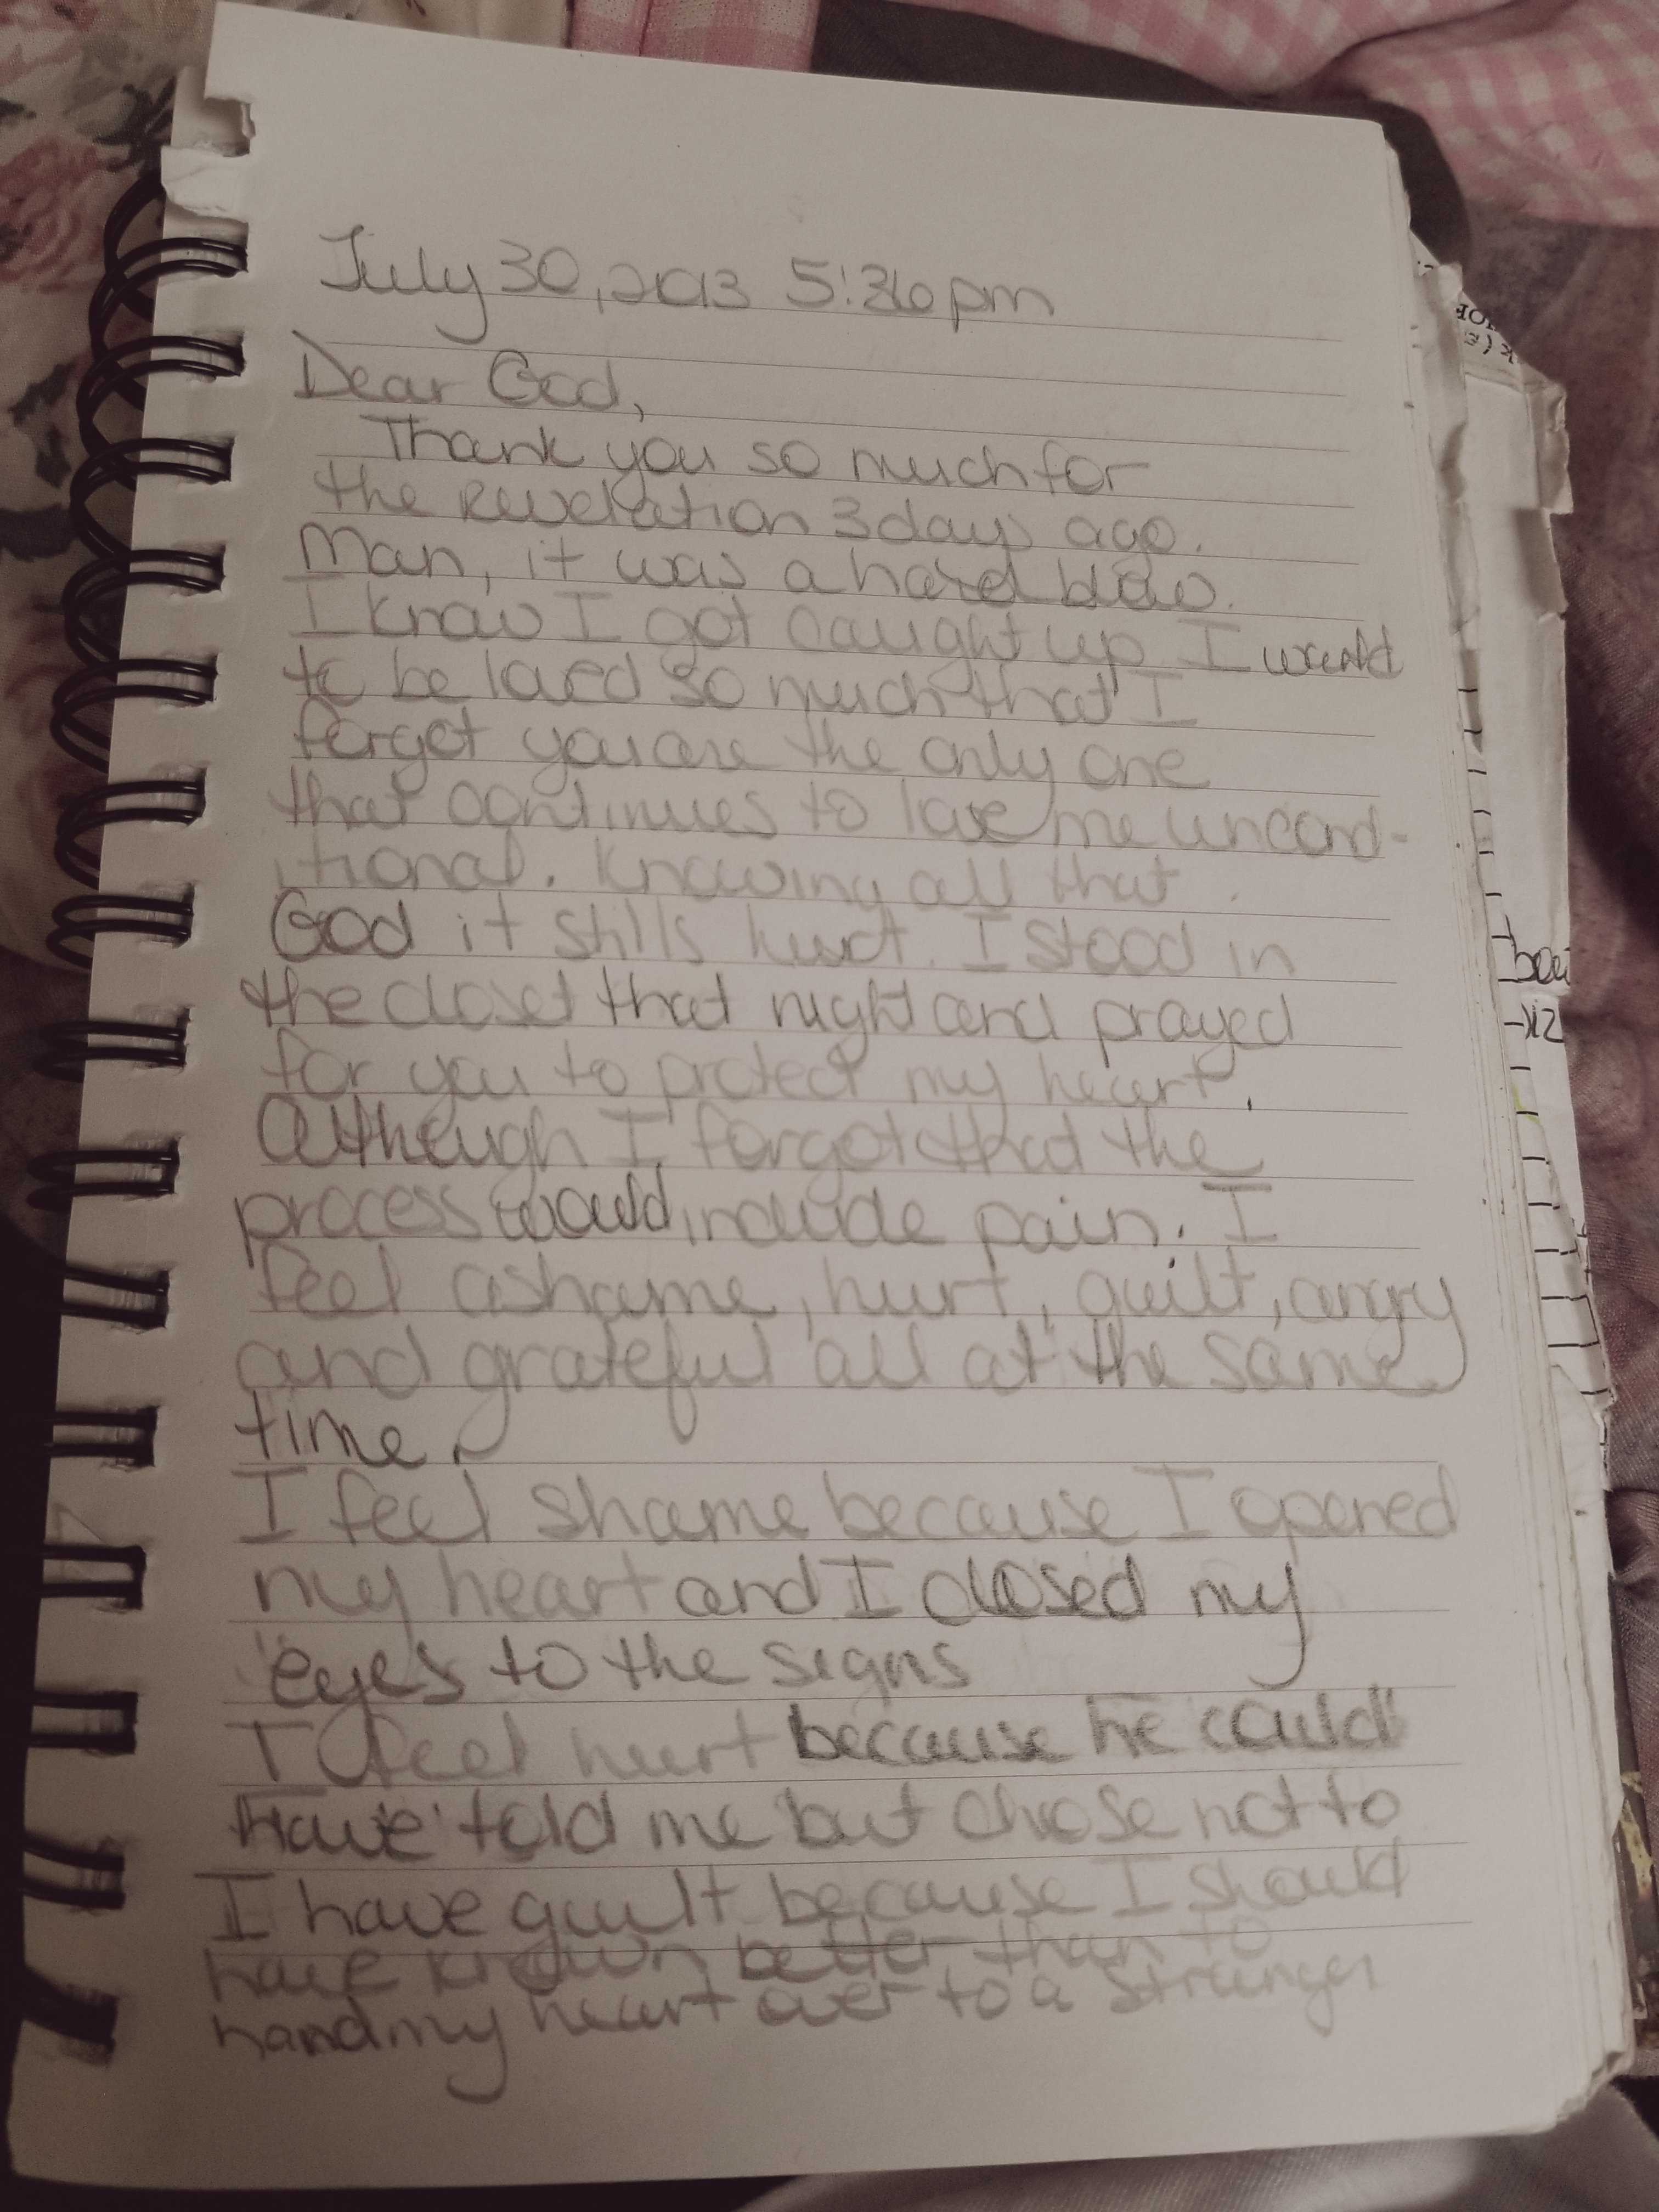 July 30, 2013 5:36pm
Dear God,
Thank you so much for
the revelation 3 days ago.
Man, it was a hard blow.
I know I got caught up I want
to be loved so much that I
forgot you are the only one
that continues to love me uncond-
itional. Knowing all that
God it stills hurt. I stood in
the closet that night and prayed
for you to protect my heart.
Although I forgot that the
process would include pain. I
feel ashame, hurt, guilt, angry
and grateful all at the same
time.
I feel shame because I opened
my heart and I closed my
eyes to the signs
I feel hurt because he could
have told me but chose not to
I have guilt because I should
have known better than to
hand my heart over to a stranger